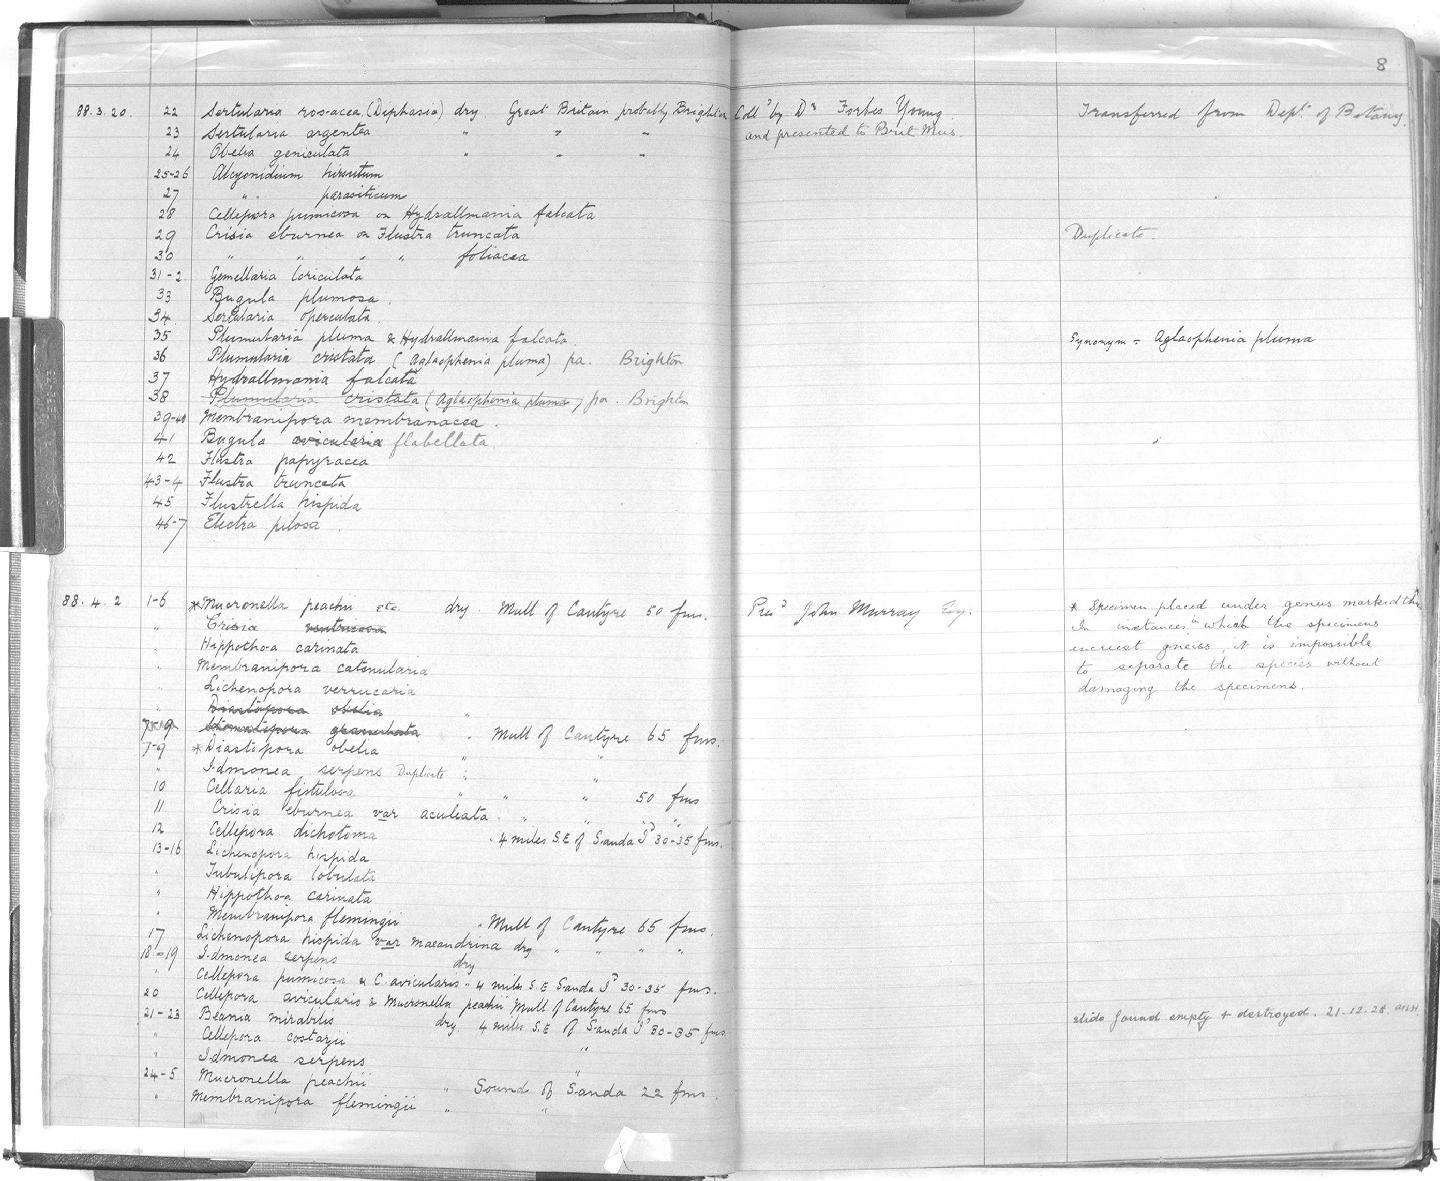 8
88.3.20. 22 Sertularia rosacea (Diphasia) dry Great Britain probably Brighton Colld by Dr Forbes Young. Transferred from Dept. of Botany.
23 Sertularia argentea " " " and presented to Brit Mus.
24 Obelia geniculata " " "
25-26 Alcyonidium hirsutum
27 " " parasiticum
28 Cellepora pumicosa on Hydrallmania falcata
29 Crisia eburnea on Flustra truncata Duplicate.
30 " " " " foliacea
31-2 Gemellaria loriculata
33 Bugula plumosa.
34. Sertularia operculata.
35 Plumularia pluma & Hydrallmania falcata. Synonym = Aglaophenia pluma
36 Plumularia cristata (Aglaophenia pluma) pa. Brighton
37 Hydrallmania falcata
38 Plumularia cristata (Aglaophenia pluma) pa. Brighton
39-40 Membranipora membranacea.
41 Bugula avicularia flabellata
42 Flustra papyracea
43-4 Flustra truncata
45 Flustrella hispida
46-7 Electra pilosa.
88.4.2 1-6 *Mucronella peachii etc. dry. Mull of Cantyre 50 fms. Presd John Murray Esq. * Specimen placed under genus marked th
" Crisia In instances in which the specimens
" Hippothoa carinata encrust gneiss, it is impossible
" Membranipora catenularia to separate the species without
" Lichenopora verrucaria damaging the specimens.
" Diastopora obelia "
Stomatopora granulata " Mull of Cantyre 65 fms.
7-9 *Diastopora obelia " "
" Idmonea serpens Duplicate "
10 Cellaria fistulosa " " " 50 fms
11 Crisia eburnea var aculeata. " " " "
12 Cellepora dichotoma " 4 miles S.E of Sanda Id 30-35 fms.
13-16 Lichenopora hispida
" Tubulipora lobulata
" Hippothoa carinata
" Membranipora flemingii " Mull of Cantyre 65 fms.
17 Lichenopora hispida var maeandrina dry " " " "
18-19 Idmonea serpens dry
" Cellepora pumicosa & C. avicularis " 4 miles S.E Sanda Id 30-35 fms.
20 Cellepora avicularis & Mucronella peachii Mull of Cantyre 65 fms
21-23 Beania mirabilis dry 4 miles S.E of Sanda Id 30-35 fms. slide found empty & destroyed. 21.12.28
" Cellepora costazii "
" Idmonea serpens "
24-5 Mucronella peachii " Sound of Sanda 22 fms.
" Membranipora flemingii " "